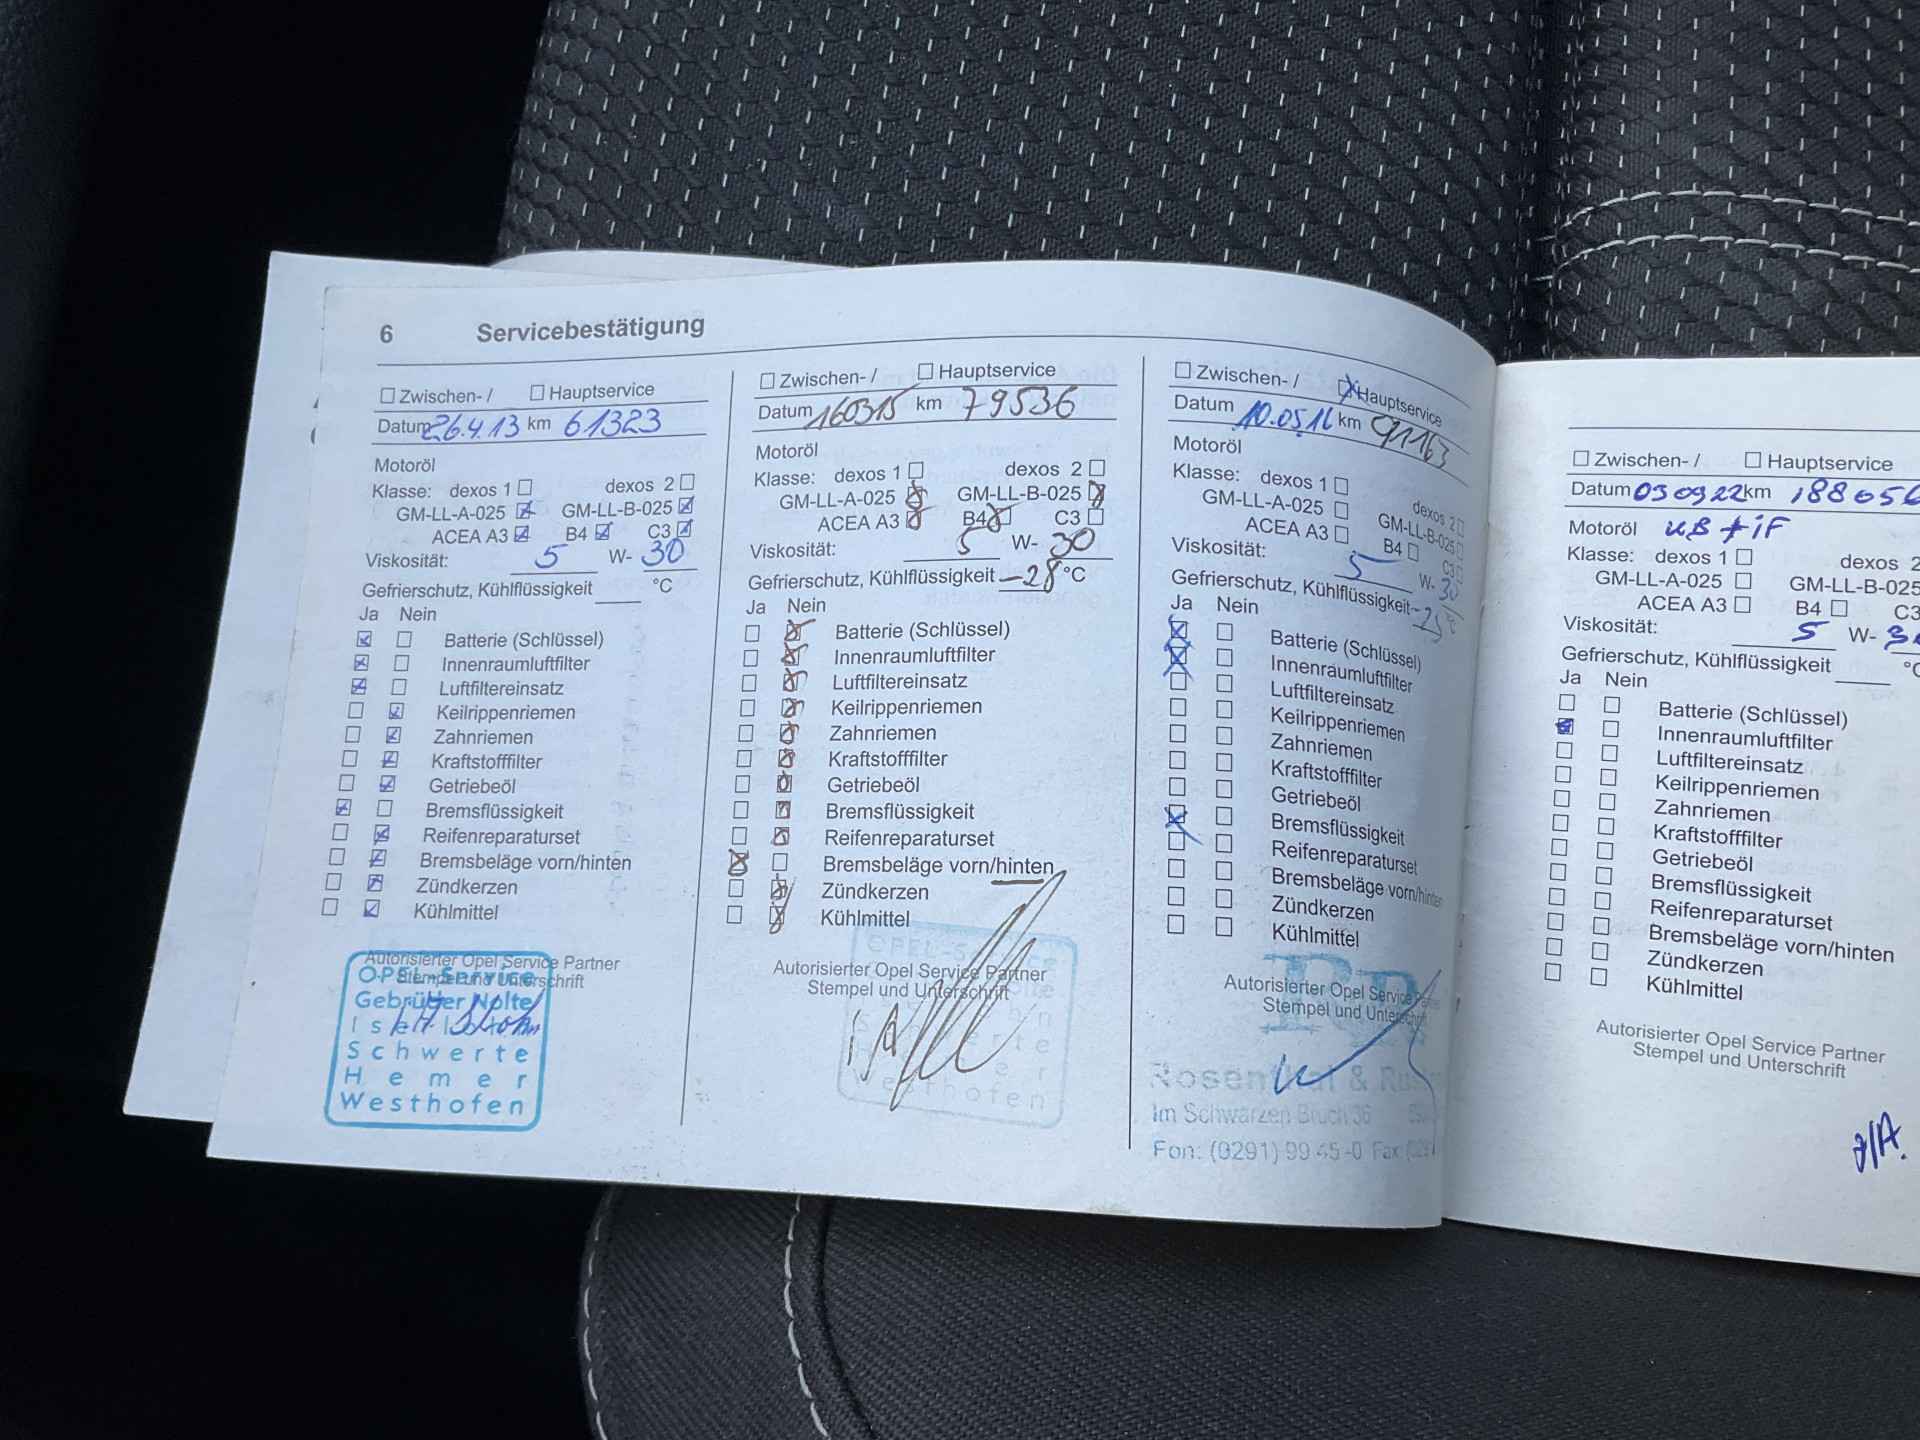 6 Servicebestätigung
☐ Zwischen- / ☐ Hauptservice
Datum 26.4.13 km 61323
Motoröl
Klasse: dexos 1 ☐ dexos 2 ☐
GM-LL-A-025 ☑ GM-LL-B-025 ☑
ACEA A3 ☑ B4 ☑ C3 ☑
Viskosität: 5 W- 30
Gefrierschutz, Kühlflüssigkeit ____ °C
Ja Nein
☑ ☐ Batterie (Schlüssel)
☑ ☐ Innenraumluftfilter
☑ ☐ Luftfiltereinsatz
☐ ☑ Keilrippenriemen
☐ ☑ Zahnriemen
☐ ☑ Kraftstofffilter
☐ ☑ Getriebeöl
☑ ☐ Bremsflüssigkeit
☐ ☑ Reifenreparaturset
☐ ☑ Bremsbeläge vorn/hinten
☐ ☑ Zündkerzen
☐ ☑ Kühlmittel
Autorisierter Opel Service Partner
Stempel und Unterschrift
OPEL-Service
Gebrüder Nolte
Iserlohn
Schwerte
Hemer
Westhofen
☐ Zwischen- / ☐ Hauptservice
Datum 160315 km 79536
Motoröl
Klasse: dexos 1 ☐ dexos 2 ☐
GM-LL-A-025 ☒ GM-LL-B-025 ☒
ACEA A3 ☒ B4 ☒ C3 ☐
Viskosität: 5 W- 30
Gefrierschutz, Kühlflüssigkeit -28 °C
Ja Nein
☐ ☒ Batterie (Schlüssel)
☐ ☒ Innenraumluftfilter
☐ ☒ Luftfiltereinsatz
☐ ☒ Keilrippenriemen
☐ ☒ Zahnriemen
☐ ☒ Kraftstofffilter
☐ ☒ Getriebeöl
☐ ☒ Bremsflüssigkeit
☐ ☒ Reifenreparaturset
☒ ☐ Bremsbeläge vorn/hinten
☐ ☒ Zündkerzen
☐ ☒ Kühlmittel
Autorisierter Opel Service Partner
Stempel und Unterschrift
OPEL-Service
Westhofen
☐ Zwischen- / ☒ Hauptservice
Datum 10.05.16 km 91163
Motoröl
Klasse: dexos 1 ☐ dexos 2 ☐
GM-LL-A-025 ☐ GM-LL-B-025 ☐
ACEA A3 ☐ B4 ☐ C3 ☐
Viskosität: 5 W- 30
Gefrierschutz, Kühlflüssigkeit
Ja Nein
☒ ☐ Batterie (Schlüssel)
☒ ☐ Innenraumluftfilter
☐ ☐ Luftfiltereinsatz
☐ ☐ Keilrippenriemen
☐ ☐ Zahnriemen
☐ ☐ Kraftstofffilter
☐ ☐ Getriebeöl
☒ ☐ Bremsflüssigkeit
☐ ☐ Reifenreparaturset
☐ ☐ Bremsbeläge vorn/hinten
☐ ☐ Zündkerzen
☐ ☐ Kühlmittel
Autorisierter Opel Service Partner
Stempel und Unterschrift
Rosenthal &
Im Schwarzen Bruch 36
Fon: (0291) 99 45-0 Fax
☐ Zwischen- / ☐ Hauptservice
Datum 050922 km 188056
Motoröl
Klasse: dexos 1 ☐ dexos 2
GM-LL-A-025 ☐ GM-LL-B-025
ACEA A3 ☐ B4 ☐ C3
Viskosität: 5 W-
Gefrierschutz, Kühlflüssigkeit ____ °C
Ja Nein
☐ ☐ Batterie (Schlüssel)
☒ ☐ Innenraumluftfilter
☐ ☐ Luftfiltereinsatz
☐ ☐ Keilrippenriemen
☐ ☐ Zahnriemen
☐ ☐ Kraftstofffilter
☐ ☐ Getriebeöl
☐ ☐ Bremsflüssigkeit
☐ ☐ Reifenreparaturset
☐ ☐ Bremsbeläge vorn/hinten
☐ ☐ Zündkerzen
☐ ☐ Kühlmittel
Autorisierter Opel Service Partner
Stempel und Unterschrift